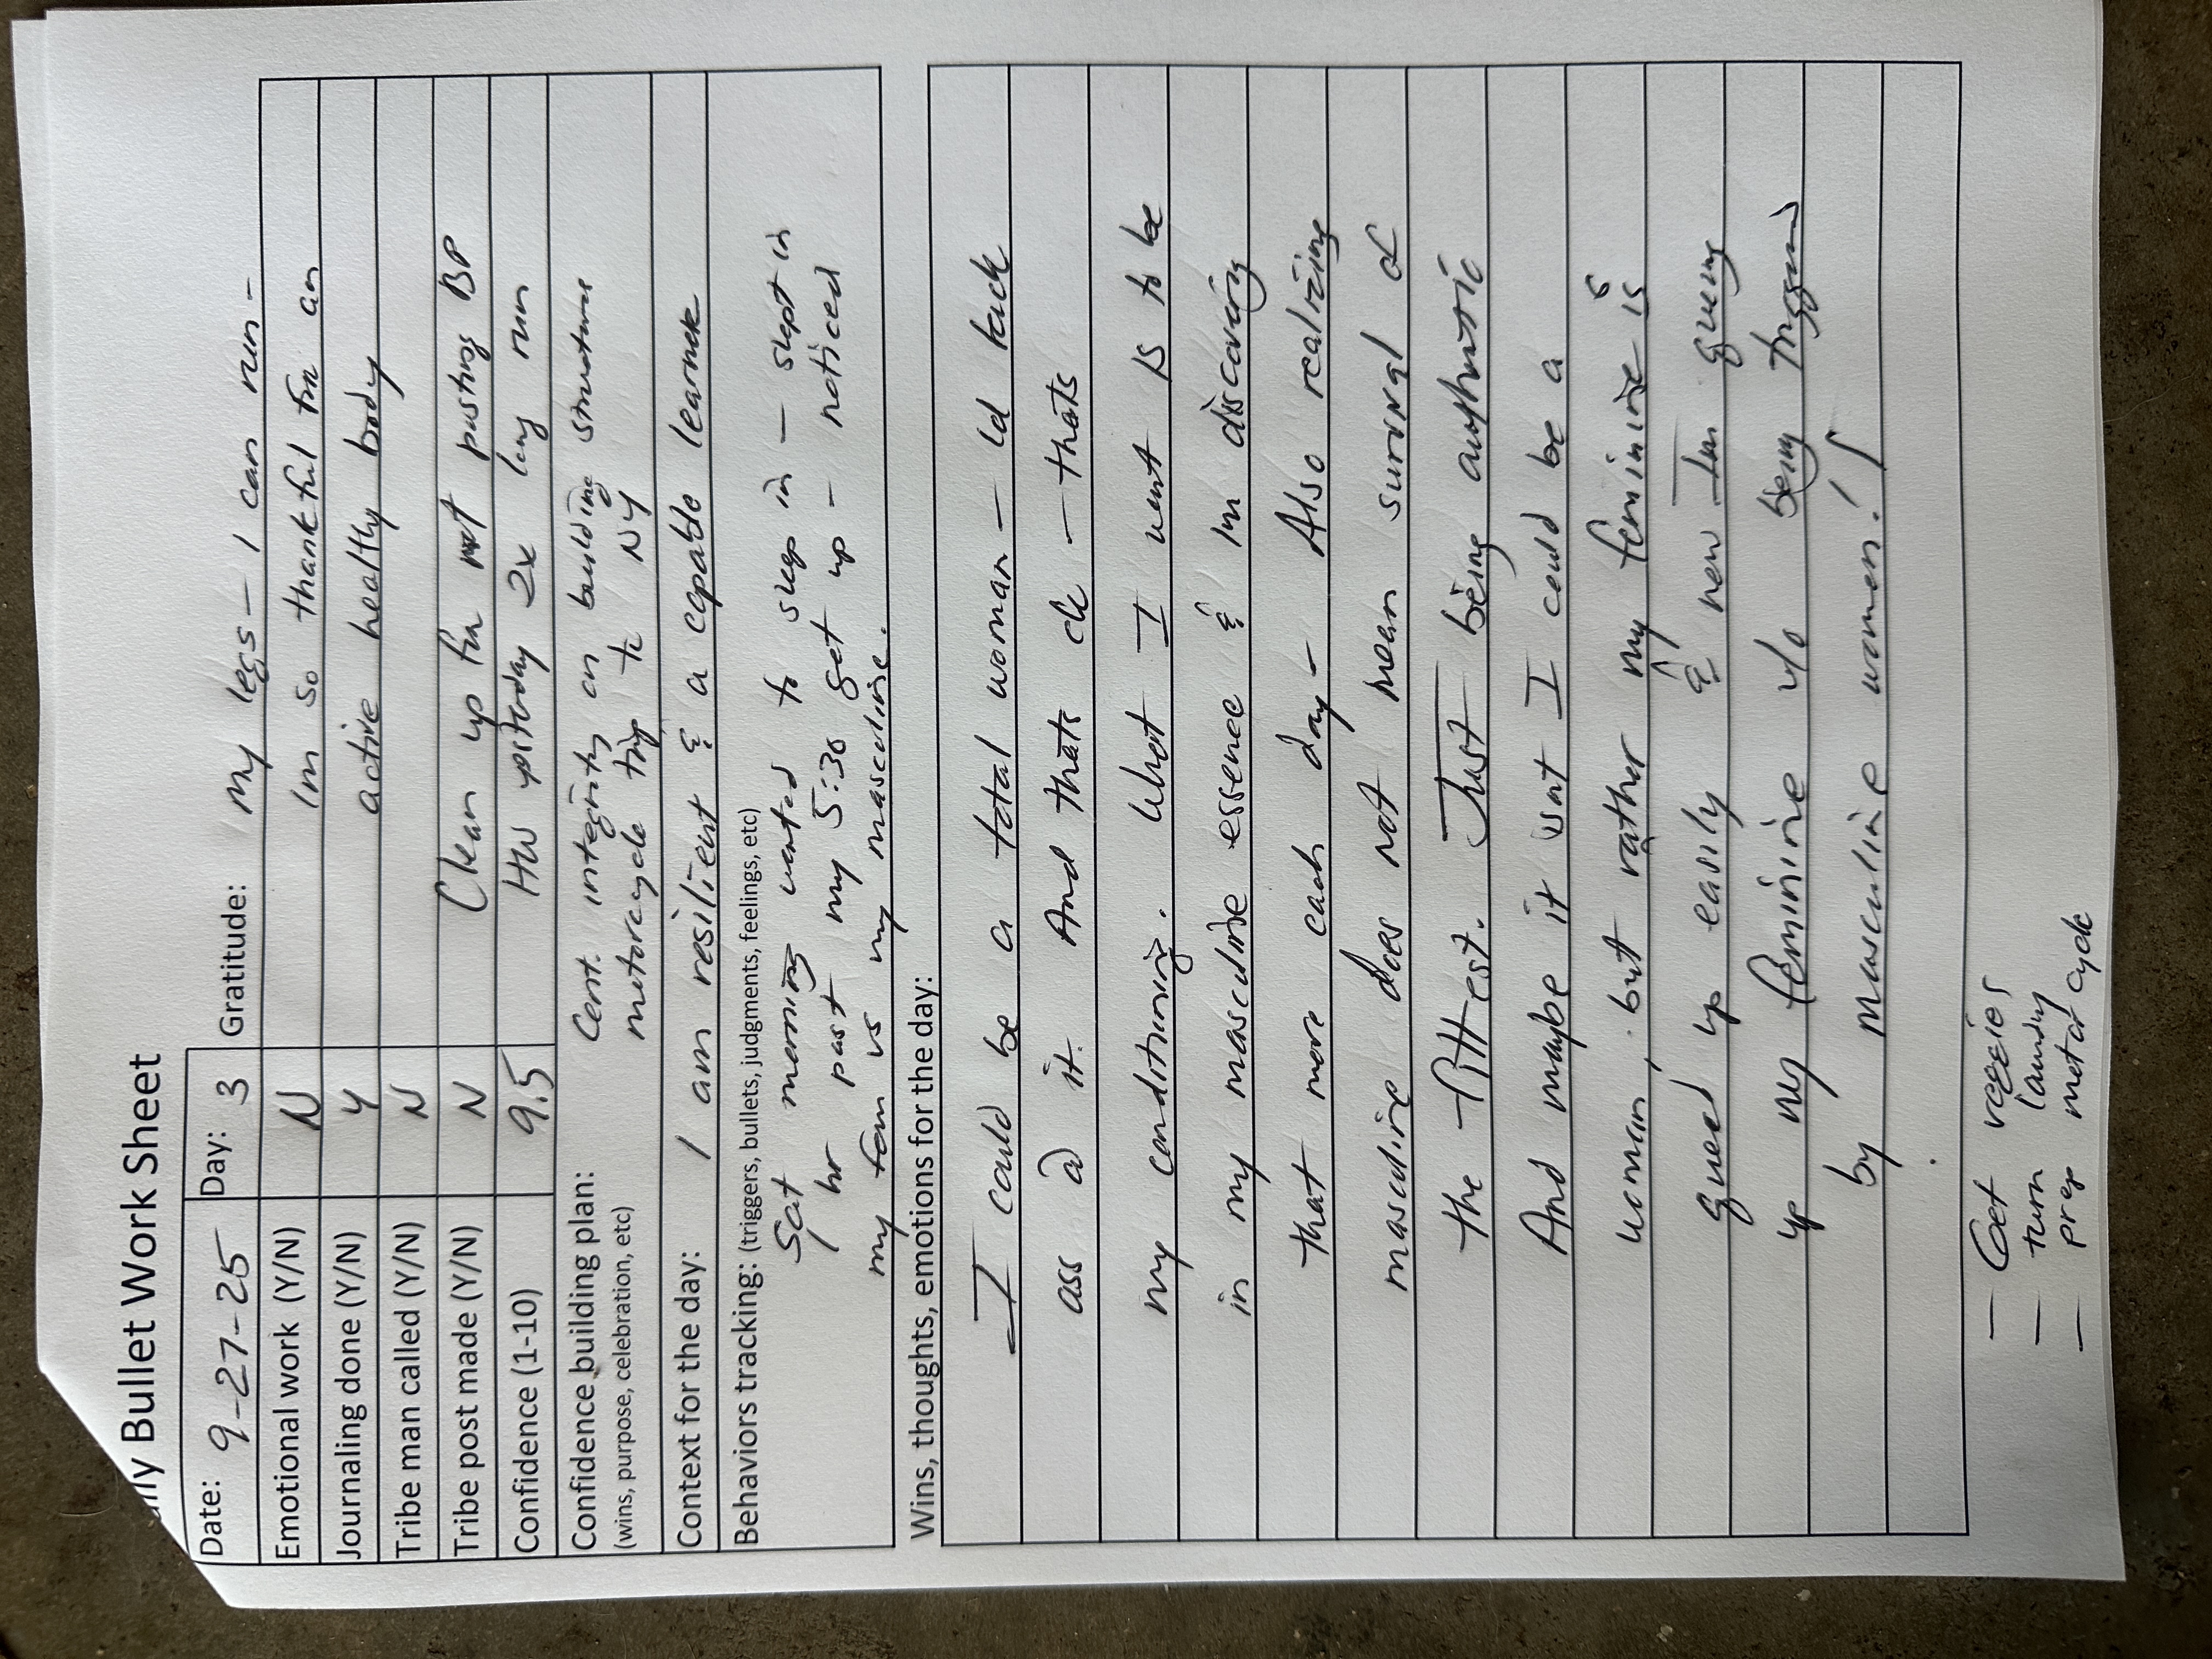 Daily Bullet Work Sheet
Date: 9-27-25 Day: 3 Gratitude: My legs - I can run -
Emotional work (Y/N) N Im so thankful for an
Journaling done (Y/N) Y active healthy body
Tribe man called (Y/N) N
Tribe post made (Y/N) N Clean up for not posting BP
Confidence (1-10) 9.5 HW yesterday 2x long run
Confidence building plan: Cont. integrity on building structure
(wins, purpose, celebration, etc) motorcycle trip to NY
Context for the day: I am resilient & a capable learner
Behaviors tracking: (triggers, bullets, judgments, feelings, etc)
Sat morning wanted to sleep in - slept in
hr past my 5:30 get up - noticed
my fem vs my masculine.
Wins, thoughts, emotions for the day:
I could be a total woman - Id kick
ass @ it. And thats ok - thats
my conditioning. What I want is to be
in my masculine essence & Im discovering
that more each day - Also realizing
masculine does not mean survival of
the fittest. Just being authentic
And maybe it isnt I could be a
woman, but rather my feminine is
queued up easily & now Im
up my feminine w/o being triggered
by masculine women!
- Get veggies
- turn laundry
- prep motor cycle